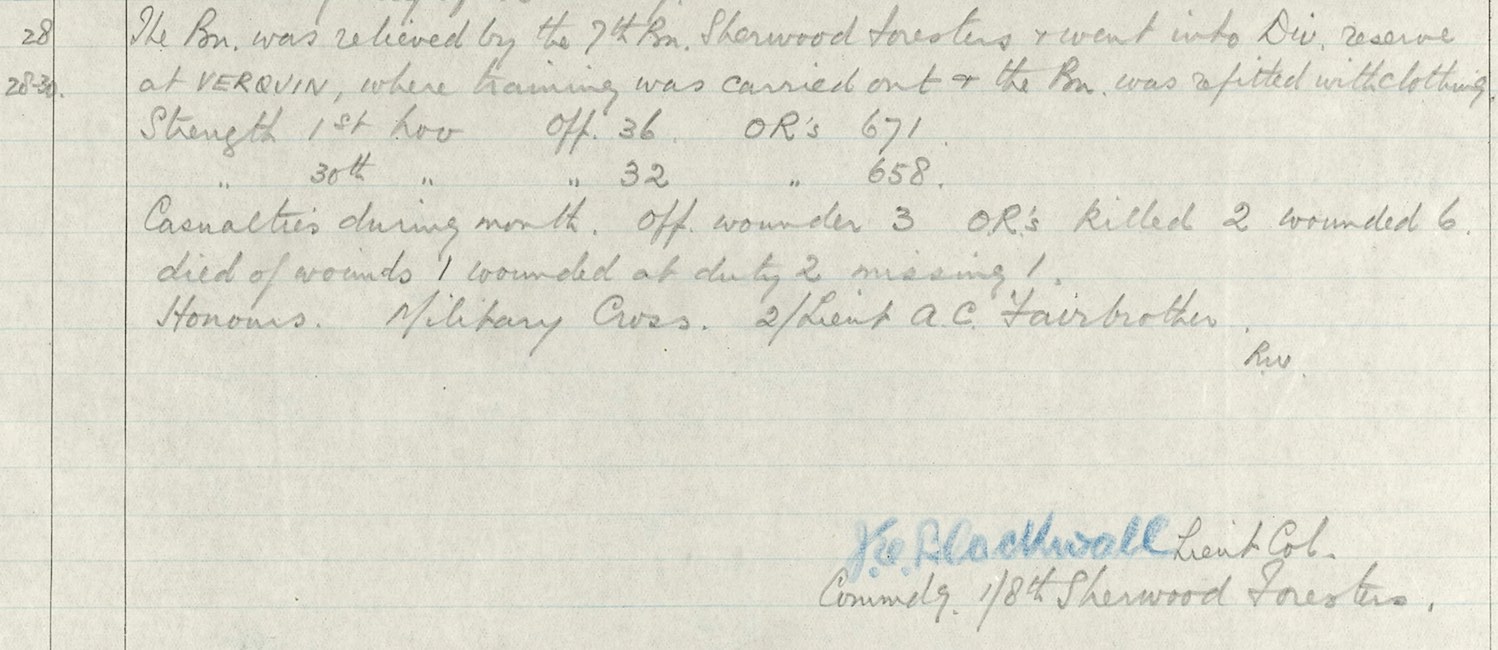 28 The Bn. was relieved by the 7th Bn. Sherwood Foresters & went into Div. reserve
28-30. at VERQVIN, where training was carried out & the Bn. was refitted with clothing.
Strength 1st Nov Off. 36. OR's 671.
" 30th " " 32 " 658.
Casualties during month. Off. wounder 3 OR's killed 2 wounded 6.
died of wounds 1 wounded at duty 2 missing 1.
Honours. Military Cross. 2/Lieut A.C. Fairbrother.
Blackwall Lieut Col.
Commdg. 1/8th Sherwood Foresters.